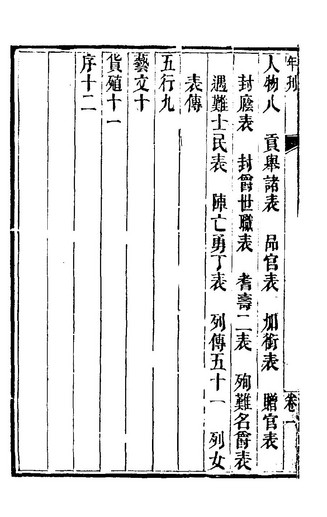 年刊
卷一
人物八　貢舉諸表　品官表　加銜表　贈官表
封廕表　封爵世職表　耆壽二表　殉難名爵表
遇難士民表　陳亡勇丁表　列傳五十一　列女
表傳
五行九
藝文十
貨殖十一
序十二